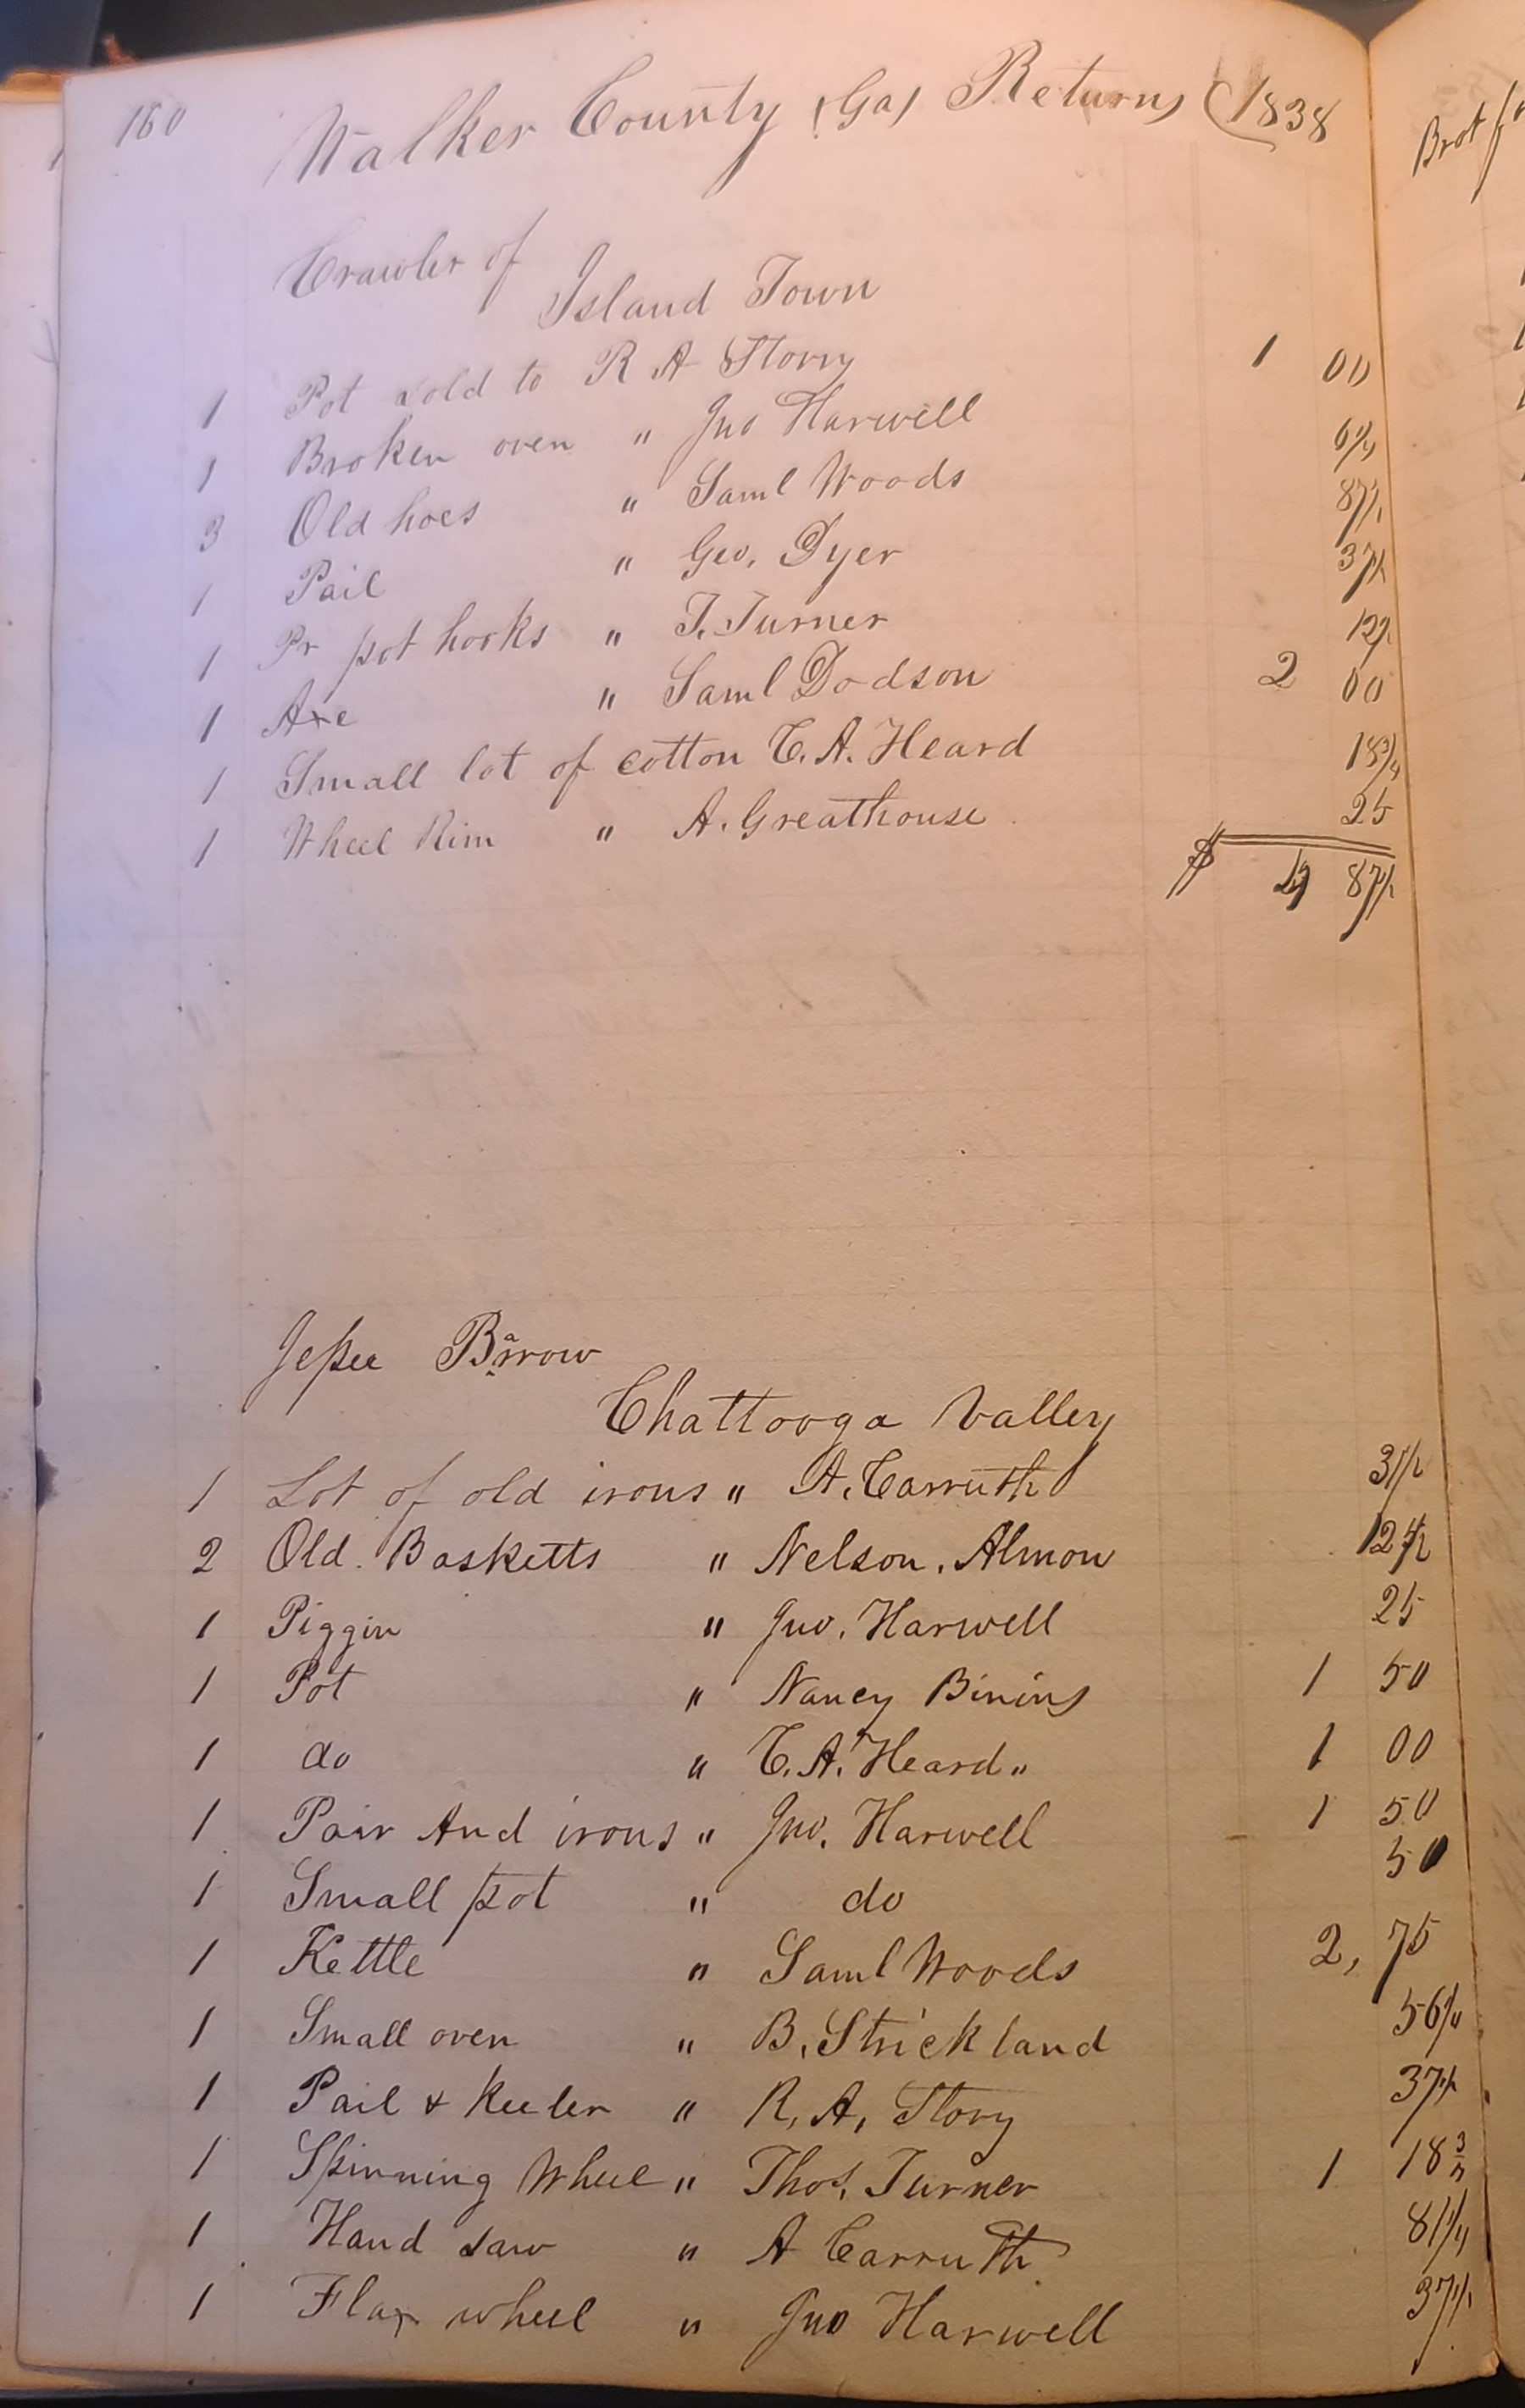 160 Walker County (Ga) Returns (1838
Crawler of
Island Town
1 Pot sold to R A Story 1 00
1 Broken oven " Jno Harwell 6 1/4
3 Old hoes " Saml Woods 87 1/2
1 Pail " Geo. Dyer 37 1/2
1 Pr pot hooks " T. Turner 12 1/2
1 Axe " Saml Dodson 2 00
1 Small lot of cotton C. A. Heard 18 3/4
1 Wheel Rim " A. Greathouse 25
$ 4 87 1/2
Jessee Barrow
Chattooga Valley
1 Lot of old irons " A. Carruth 31 1/2
2 Old Basketts " Nelson. Almon 12 1/2
1 Piggin " Jno. Harwell 25
1 Pot " Nancy Binins 1 50
1 do " C. A. Heard " 1 00
1 Pair And irons " Jno. Harwell 1 50
1 Small pot " do 50
1 Kettle " Saml Woods 2, 75
1 Small oven " B. Strickland 56 1/4
1 Pail & Keeler " R. A. Story 37 1/2
1 Spinning Wheel " Thos. Turner 1 18 3/4
1 Hand saw " A Carruth 81 1/4
1 Flax wheel " Jno Harwell 37 1/2
Brot